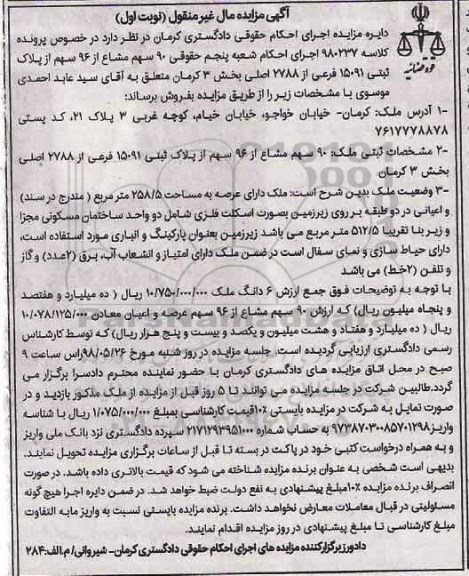 آگهی مزایده مال غیر منقول (نوبت اول)
دایره مزایده اجرای احکام حقوقی دادگستری کرمان در نظر دارد در خصوص پرونده
کلاسه ۹۸۰۲۳۷ اجرای احکام شعبه پنجم حقوقی ۹۰ سهم مشاع از ۹۶ سهم از پلاک
ثبتی ۱۵۰۹۱ فرعی از ۲۷۸۸ اصلی بخش ۳ کرمان متعلق به آقای سید عابد احمدی
موسوی با مشخصات زیر را از طریق مزایده بفروش برساند:
قوه قضائیه
۱- آدرس ملک: کرمان- خیابان خواجو، خیابان خیام، کوچه غربی ۳ پلاک ۲۱، کد پستی
۷۶۱۷۷۷۸۸۷۸
۲- مشخصات ثبتی ملک: ۹۰ سهم مشاع از ۹۶ سهم از پلاک ثبتی ۱۵۰۹۱ فرعی از ۲۷۸۸ اصلی
بخش ۳ کرمان
۳- وضعیت ملک بدین شرح است: ملک دارای عرصه به مساحت ۲۵۸/۵ متر مربع ( مندرج در سند)
و اعیانی در دو طبقه بر روی زیرزمین بصورت اسکلت فلزی شامل دو واحد ساختمان مسکونی مجزا
و زیر بنا تقریبا ۵۱۲/۵ متر مربع می باشد زیرزمین بعنوان پارکینگ و انباری مورد استفاده است،
دارای حیاط سازی و نمای سفال است در ضمن ملک دارای امتیاز و انشعاب آب، برق (۲عدد) و گاز
و تلفن (۲خط) می باشد
با توجه به توضیحات فوق جمع ارزش ۶ دانگ ملک ۱۰/۷۵۰/۰۰۰/۰۰۰ ریال ( ده میلیارد و هفتصد
و پنجاه میلیون ریال) که ارزش ۹۰ سهم مشاع از ۹۶ سهم عرصه و اعیان معادن ۱۰/۰۷۸/۱۲۵/۰۰۰
ریال ( ده میلیارد و هفتاد و هشت میلیون و یکصد و بیست و پنج هزار ریال) که توسط کارشناس
رسمی دادگستری ارزیابی گردیده است. جلسه مزایده در روز شنبه مورخ ۹۸/۰۵/۲۶ راس ساعت ۹
صبح در محل اتاق مزایده های دادگستری کرمان با حضور نماینده محترم دادسرا برگزار می
گردد.طالبین شرکت در جلسه مزایده می توانند تا ۵ روز قبل از مزایده از ملک مذکور بازدید و در
صورت تمایل به شرکت در مزایده بایستی ۱۰٪قیمت کارشناسی بمبلغ ۱/۰۷۵/۰۰۰/۰۰۰ ریال با شناسه
واریز ۹۷۳۸۷۰۳۰۰۸۵۷۰۱۲۹۸ به حساب شماره ۲۱۷۱۲۹۳۹۵۱۰۰۰ سپرده دادگستری نزد بانک ملی واریز
و به همراه درخواست کتبی خود در پاکت در بسته تا قبل از ساعات برگزاری مزایده تحویل نمایند.
بدیهی است شخصی به عنوان برنده مزایده شناخته می شود که قیمت بالاتری داده باشد. در صورت
انصراف برنده مزایده ۱۰٪مبلغ پیشنهادی به نفع دولت ضبط خواهد شد. در ضمن دایره اجرا هیچ گونه
مسئولیتی در قبال معاملات معارض نخواهد داشت. برنده مزایده بایستی نسبت به واریز مابه التفاوت
مبلغ کارشناسی تا مبلغ پیشنهادی در روز مزایده اقدام نمایند.
دادورز برگزارکننده مزایده های اجرای احکام حقوقی دادگستری کرمان- شیروانی/ م.الف:۲۸۴